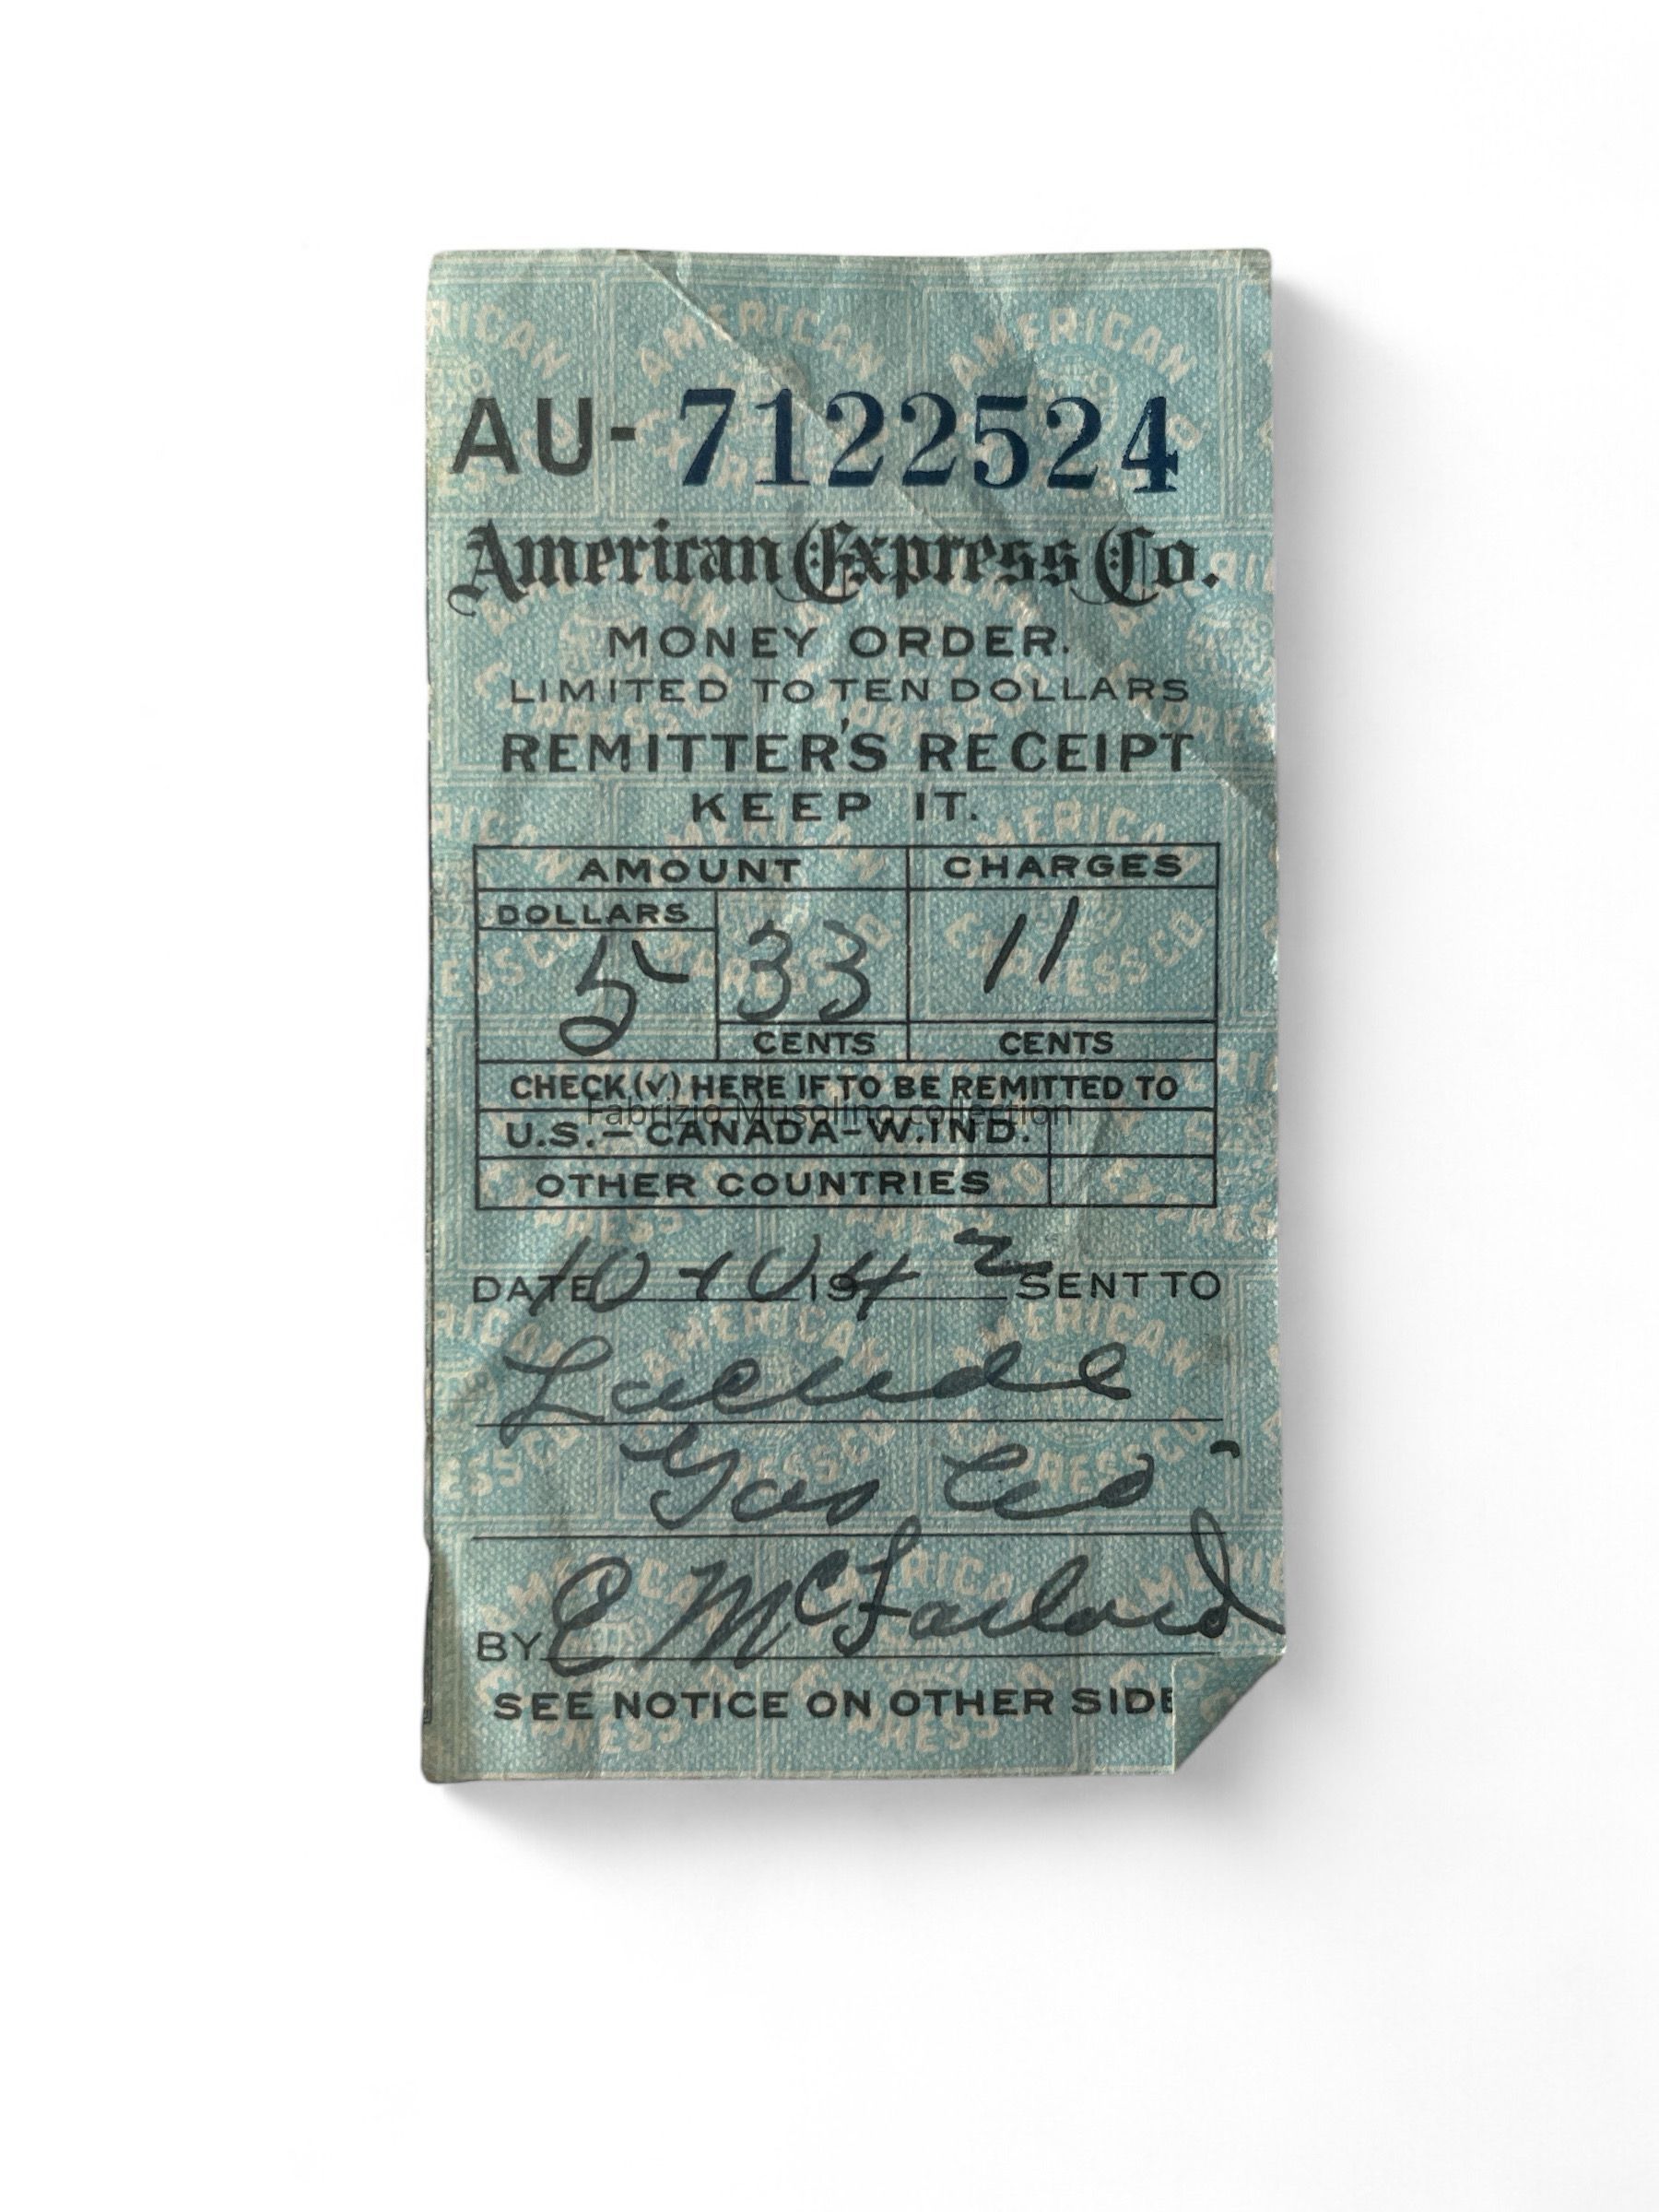 AU- 7122524
American Express Co.
MONEY ORDER.
LIMITED TO TEN DOLLARS
REMITTER'S RECEIPT
KEEP IT.
AMOUNT CHARGES
DOLLARS
5 33 11
CENTS CENTS
CHECK (√) HERE IF TO BE REMITTED TO
Fabrizio Musolino collection
U.S.—CANADA—W.IND.
OTHER COUNTRIES
DATE 10-10 1942 SENT TO
Laclede
Gas Co
BY E McFarland
SEE NOTICE ON OTHER SIDE